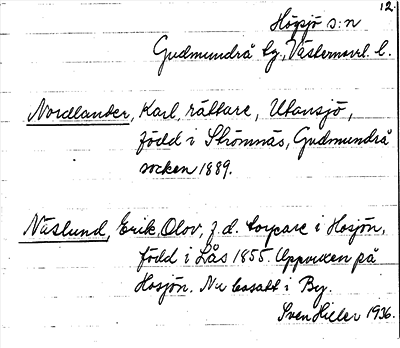 12.
Högsjö s:n
Gudmundrå tg., Västernorrl. l.
Nordlander, Karl, rättare, Utansjö,
född i Strömnäs, Gudmundrå
socken 1889.
Näslund, Erik Olov, f.d. torpare i Hosjön,
född i Lås 1855. Uppvuxen på
Hosjön. Nu bosatt i By.
Sven Hiller 1936.